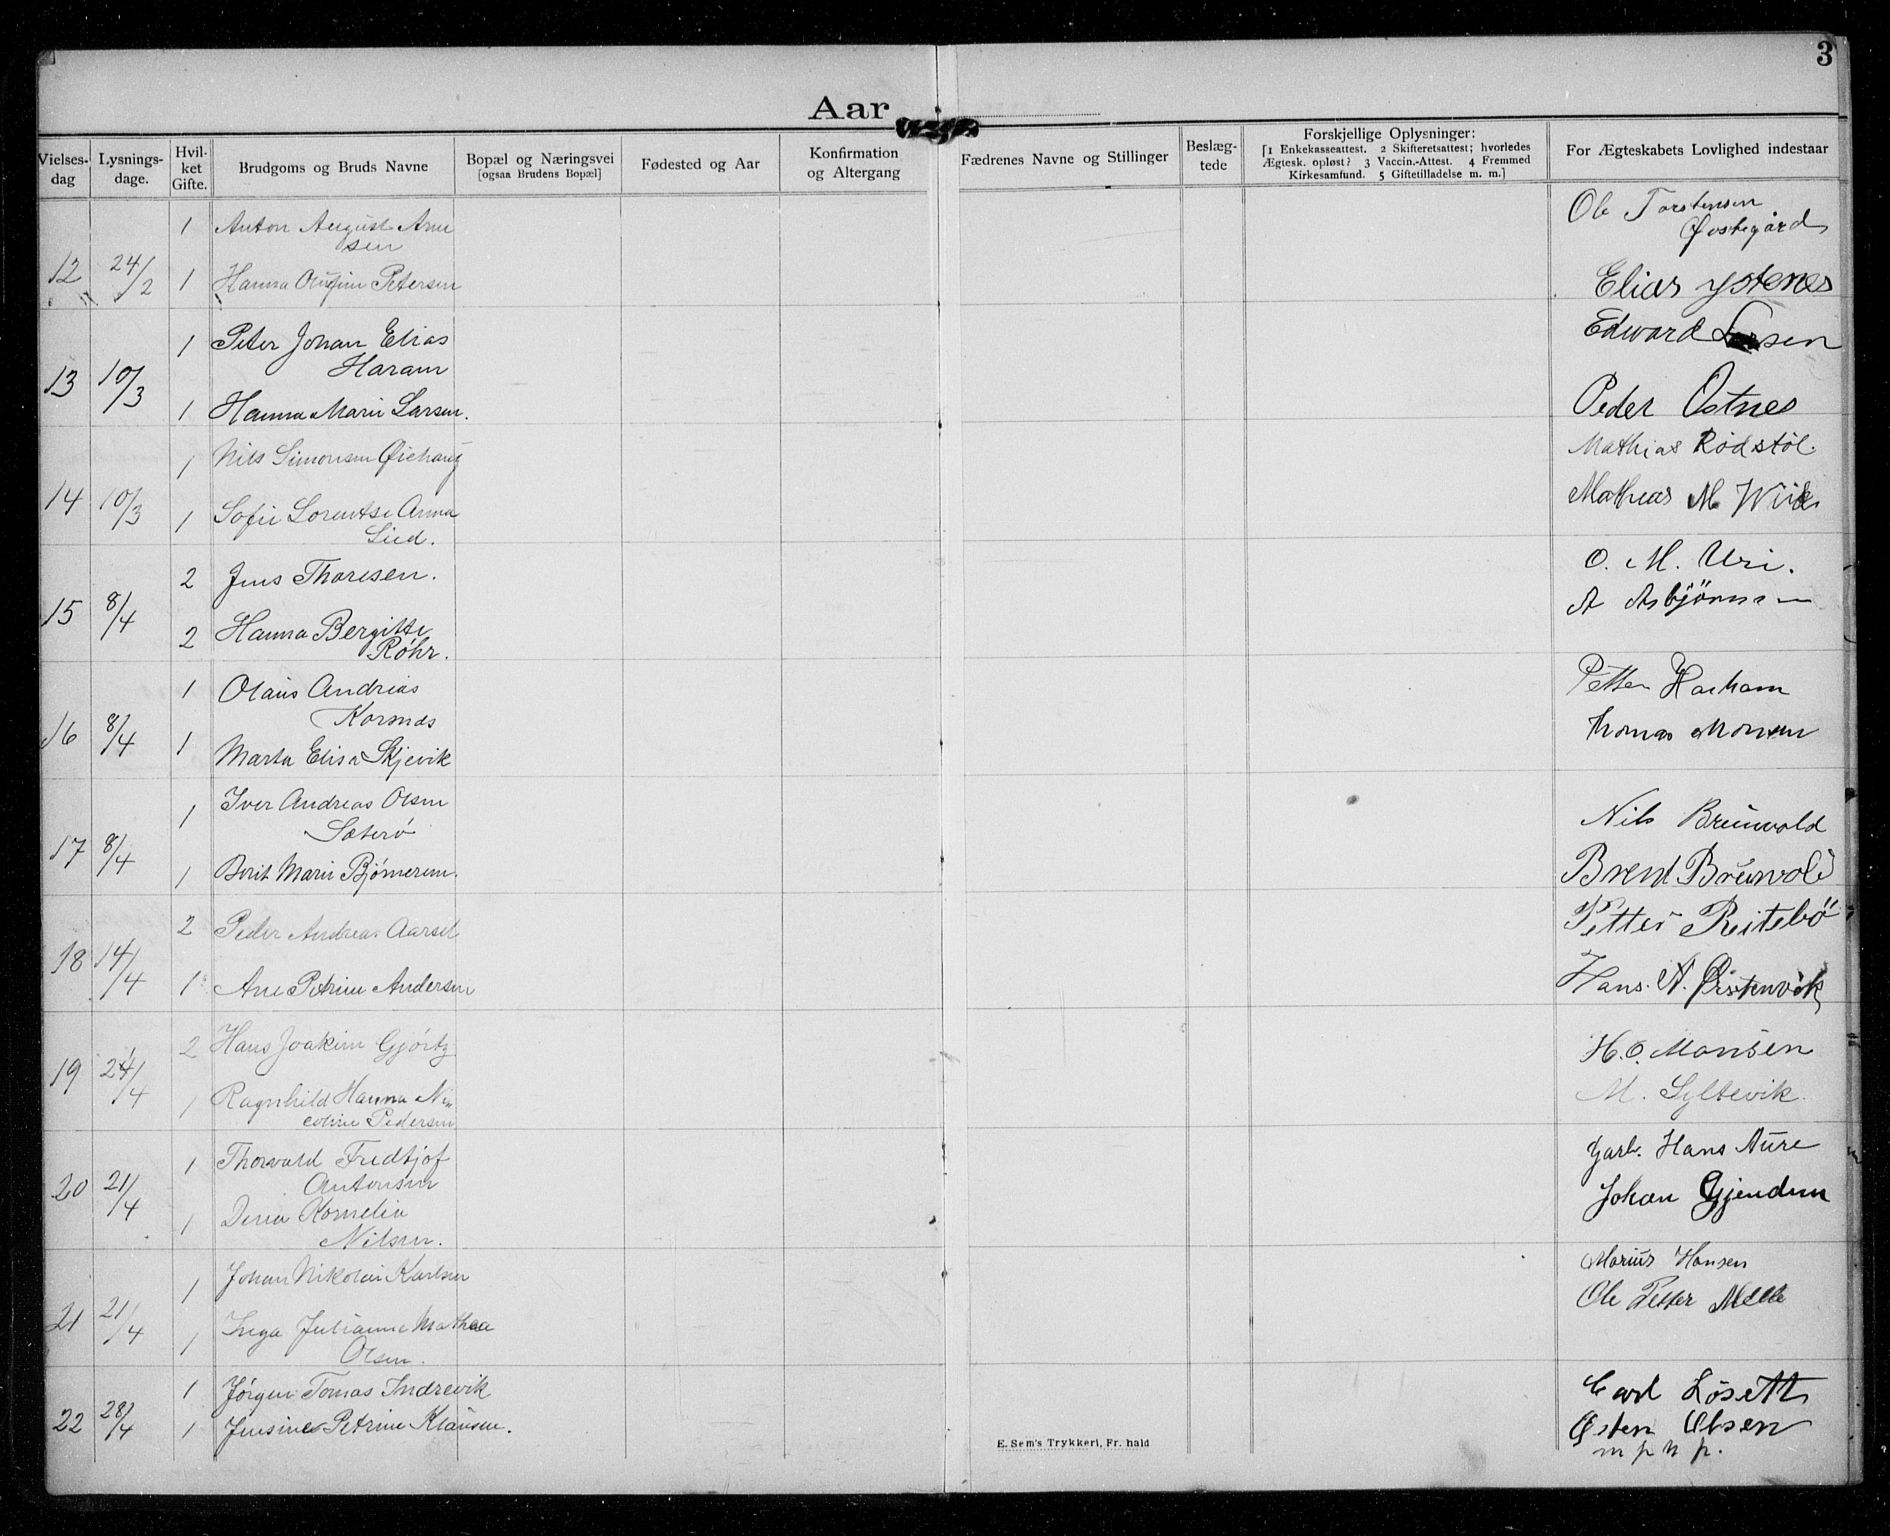 3
Aar
Vielses-
dag
Lysnings-
dage.
Hvil-
ket
Gifte.
Brudgoms og Bruds Navne
Bopæl og Næringsvei
[ogsaa Brudens Bopæl]
Fødested og Aar
Konfirmation
og Altergang
Fædrenes Navne og Stillinger
Beslæg-
tede
Forskjellige Oplysninger:
[1 Enkekasseattest. 2 Skifteretsattest; hvorledes
Ægtesk. opløst? 3 Vaccin.-Attest. 4 Fremmed
Kirkesamfund. 5 Giftetilladelse m. m.]
For Ægteskabets Lovlighed indestaar
1 Anton August Arne
sen
12 24/2 1 Hanna Olufine Petersen
Ole Torstensen
Østegård
Elias Ystenes
1 Peter Johan Elias
Haram
13 10/3 1 Hanna Marie Larsen.
Edward Larsen
Peder Ostnes
1 Nils Simonsen Øiehaug
14 10/3 1 Sofie Lorentse Anna
Lied.
Mathias Rødstøl.
Mathias M. Wiik
2 Jens Thoresen.
15 8/4 2 Hanna Bergitte
Røhr.
O. M. Uri.
A Asbjörnsen
1 Olaus Andreas
Kornæs
16 8/4 1 Marta Elisa Skjevik
Petter Harham
Thomas Monsen
1 Iver Andreas Olsen
Sæterø
17 8/4 1 Berit Marie Bjørnerem.
Nils Brunvold
Brend Brunvold
2 Peder Andreas Aarset
18 14/4 1 Ane Petrine Andersen
Petter Reitebö
Hans. A. Ørstenvik
2 Hans Joakim Gjørtz
19 21/4 1 Ragnhild Hanna Ni
coline Pedersen
H. O. Monsen
M. Syltevik.
1 Thorvald Fredtjof
Antonsen
20 21/4 1 Dina Kornelia
Nilsen.
Garb. Hans Aure
Johan Gjendem
1 Johan Nikolai Karlsen
21 21/4 1 Inga Julianne Mathea
Olsen.
Marius Hansen
Ole Petter Melle
1 Jørgen Tomas Indrevik
22 28/4 1 Jensine Petrine Klausen.
Carl Løsett
Østen Olsen
m p h p.
E. Sem's Trykkeri, Fr. hald